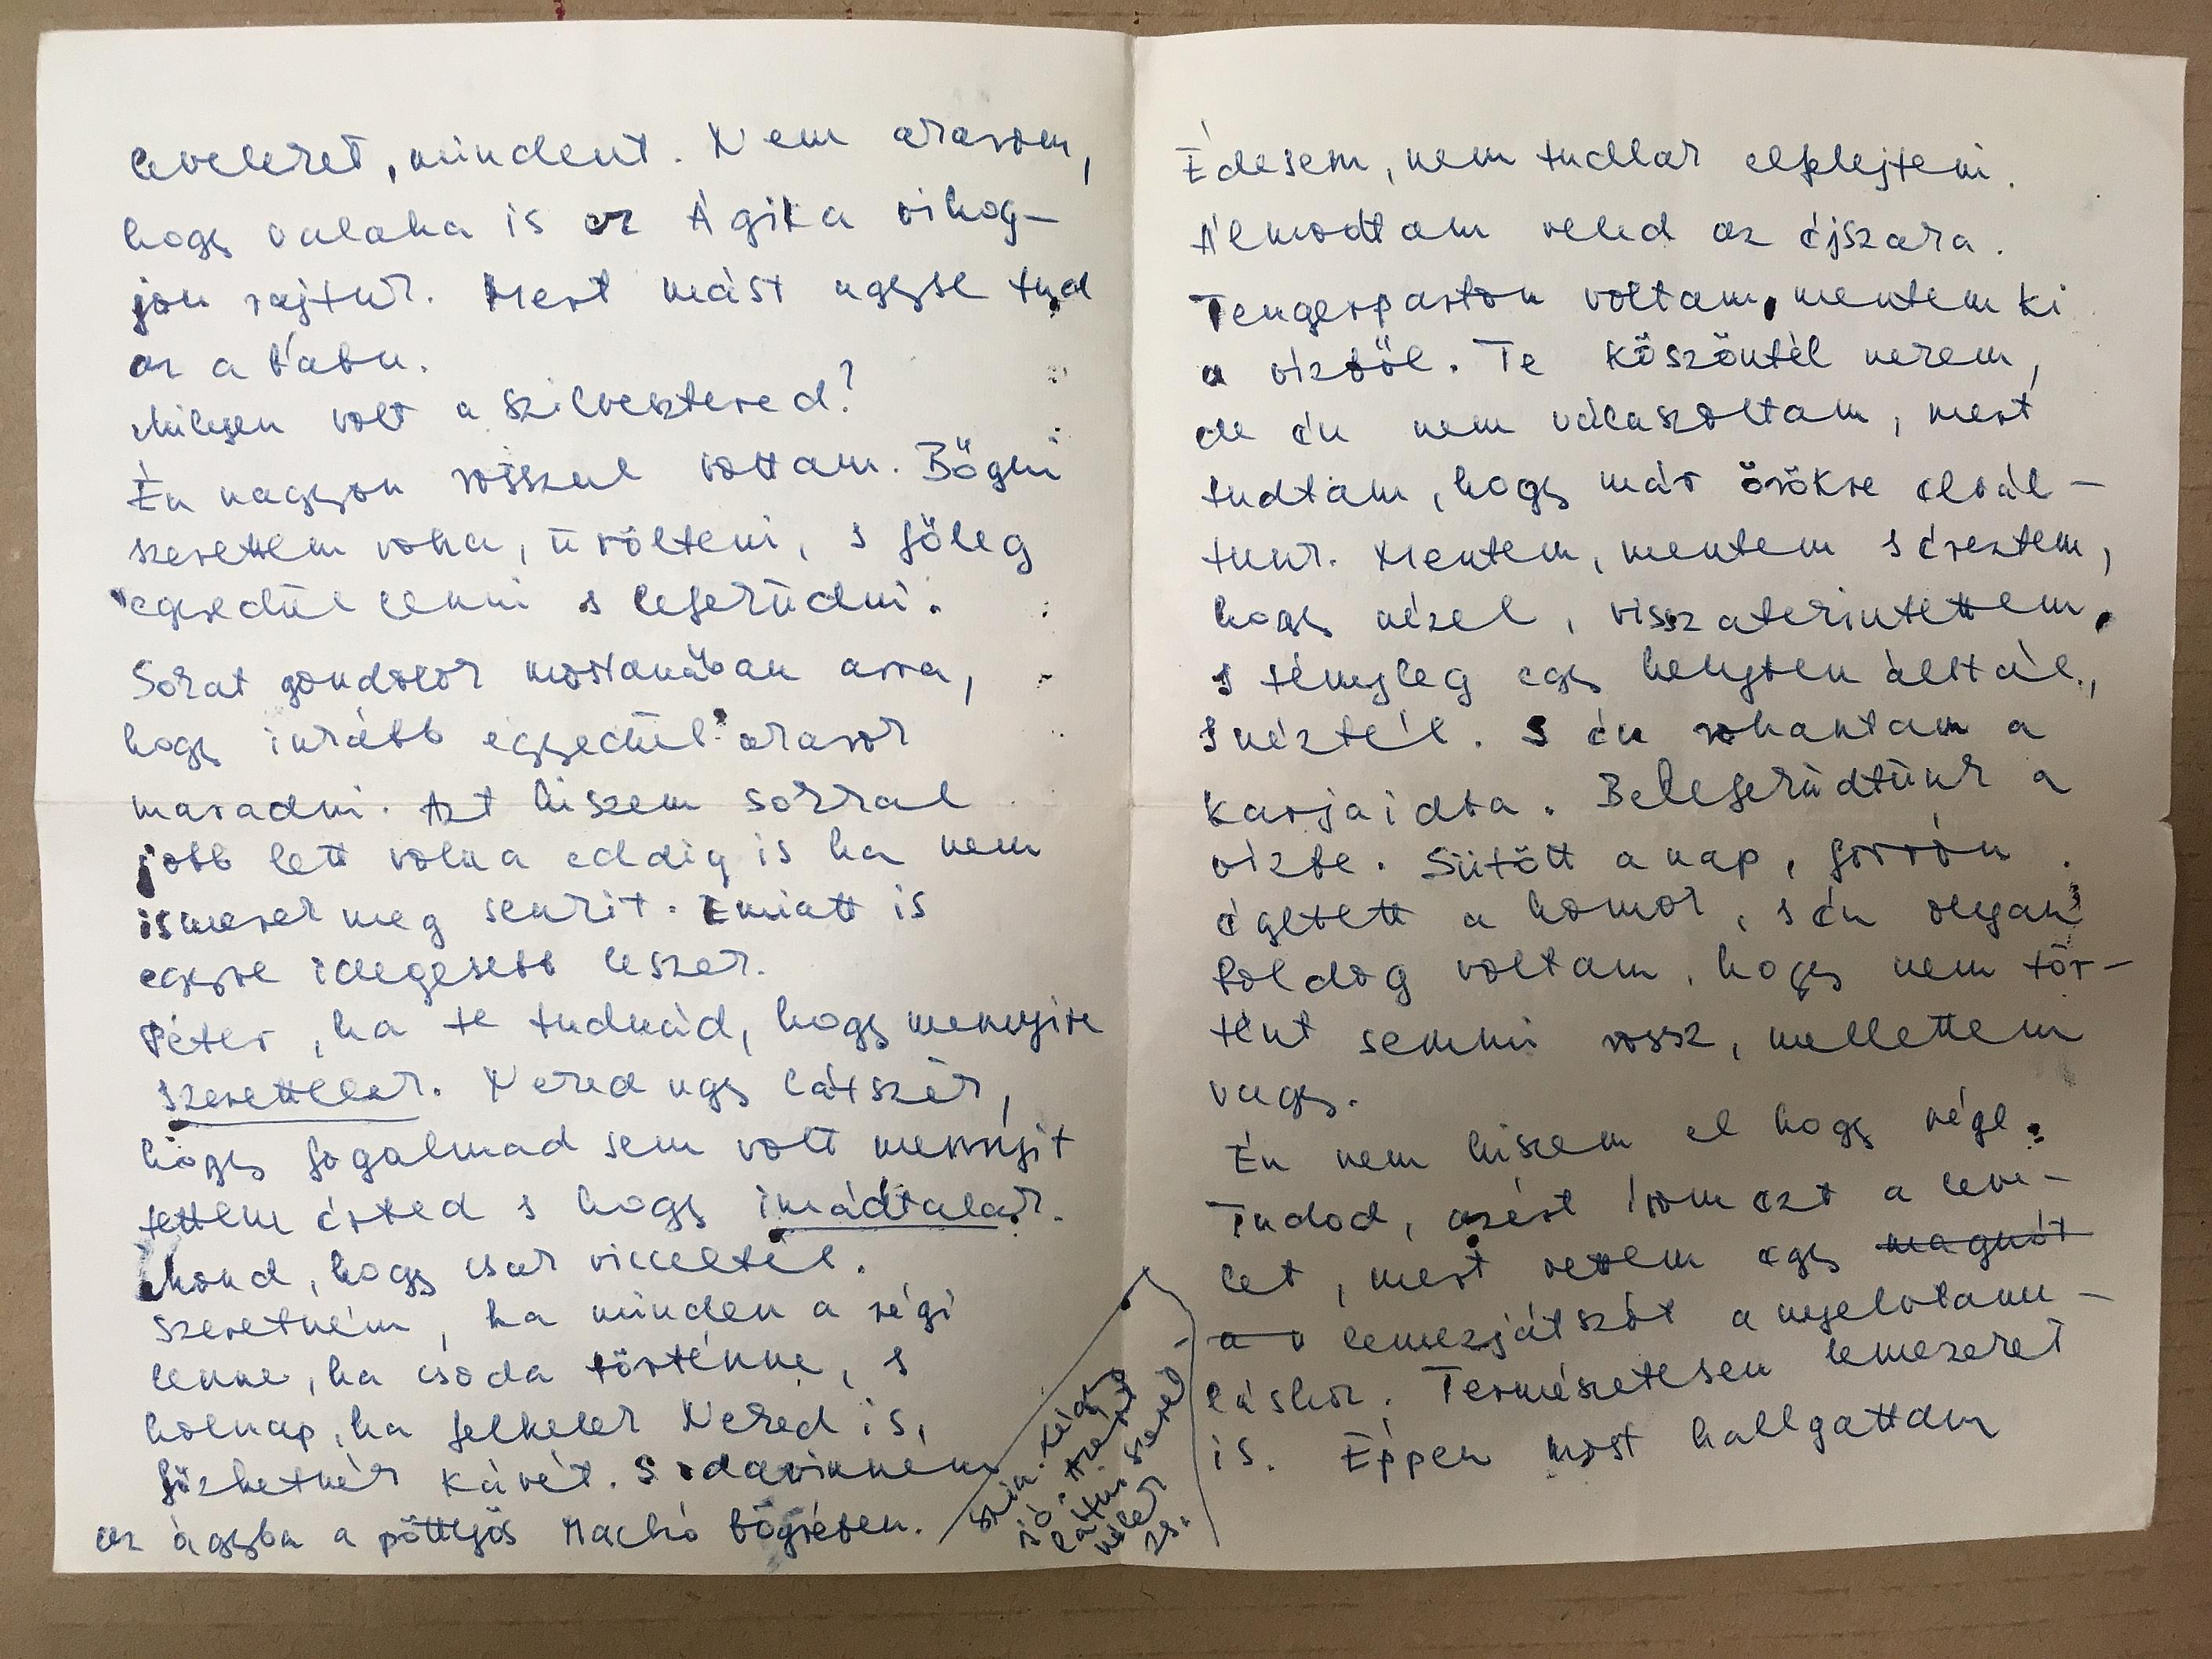 leveleket, mindent. Nem akarom,
hogy valaha is az Ágika vihog-
jon rajtuk. Mert mást ugyse tud
az a baba.
Milyen volt a szilvesztered?
Én nagyon rosszul voltam. Bőgni
szerettem volna, üvölteni, s főleg
egyedül lenni s lefeküdni.
Sokat gondolok mostanában arra,
hogy inkább egyedül akarok
maradni. Azt hiszem sokkal
jobb lett volna eddig is ha nem
ismerek meg senkit. Emiatt is
egyre idegesebb leszek.
Péter, ha te tudnád, hogy mennyire
szerettelek. Neked ugy látszik,
hogy fogalmad sem volt mennyit
tettem érted s hogy imádtalak.
Mond, hogy csak vicceltél.
Szeretném, ha minden a régi
lenne, ha csoda történne, s
holnap, ha felkelek Neked is,
főzhetnék kávét. S odavinném
az ágyba a pöttyös Mackó bögrében.
látni
veled
Édesem, nem tudlak elfelejteni.
Álmodtam veled az éjszaka.
Tengerparton voltam, mentem ki
a vizből. Te köszöntél nekem,
de én nem válaszoltam, mert
tudtam, hogy már örökre elvál-
tunk. Mentem, mentem s éreztem,
hogy nézel, visszatekintettem,
s tényleg egy helyben álltál,
s néztél. S én rohantam a
karjaidba. Belefeküdtünk a
vizbe. Sütött a nap, forrón
égetett a homok, s én olyan
boldog voltam, hogy nem tör-
tént semmi rossz, mellettem
vagy.
Én nem hiszem el hogy vége.
Tudod, azért irom ezt a leve-
let, mert vettem egy magnót
a v lemezjátszót a nyelvtanu-
láshoz. Természetesen lemezeket
is. Éppen most hallgattam